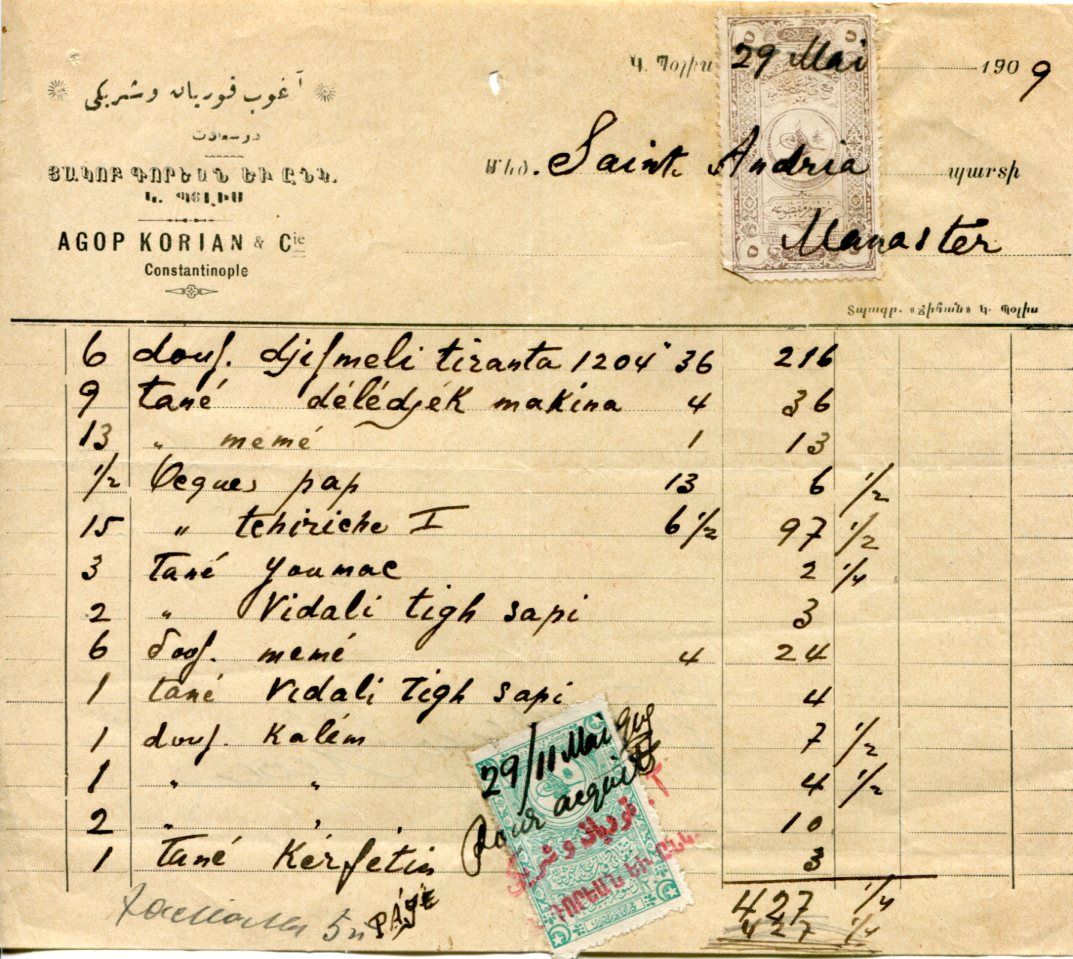 آغوب قوريان وشريكى
درسعادت
ՅԱԿՈԲ ԳՈՐԵԱՆ ԵՒ ԸՆԿ.
Կ. ՊՈԼԻՍ
AGOP KORIAN & Cie
Constantinople
Կ. Պօլիս 29 Mai 1909
Մեծ. Saint Andria պարտի
Manaster
Տպագր. «Ջիհան» Կ. Պօլիս
6 douf. djifmeli tiranta 1204 36 216
9 tané délédjék makina 4 36
13 " memé 1 13
1/2 Ocques pap 13 6 1/2
15 " tchiriche I 6 1/2 97 1/2
3 Tané youmac 2 1/4
2 " Vidali tigh sapi 3
6 douf. memé 4 24
1 tané Vidali Tigh sapi 4
1 douf. Kalém 7 1/2
1 " " 4 1/2
2 " " 10
1 Tané Kérfétin 3
427 1/4
427 1/4
29/11 Mai 909
Pour acquit
قوريان وشريكى
ԳՈՐԵԱՆ ԵՒ ԸՆԿ.
5
PAYE